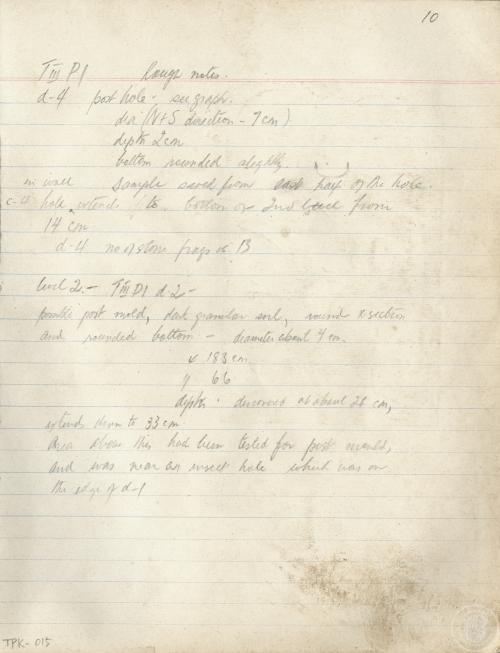 10
T III P1 Rough notes.
d-4 post hole - see graph.
dia (N+S direction - 7 cm)
depth 2 cm
bottom rounded slightly.
in wall sample saved from east half of the hole.
c-4 hole extends to bottom of 2nd level from
14 cm
d-4 no of stone frags is 13
level 2 - T III P1 d-2 -
possible post mold, dark granular soil, round x-section
and rounded bottom - diameter about 4 cm.
x 183 cm
y 66
depth - discovered at about 26 cm,
extends down to 33 cm
Area above this had been tested for post moulds,
and was near an insect hole which was on
the edge of d-1
TPK-015